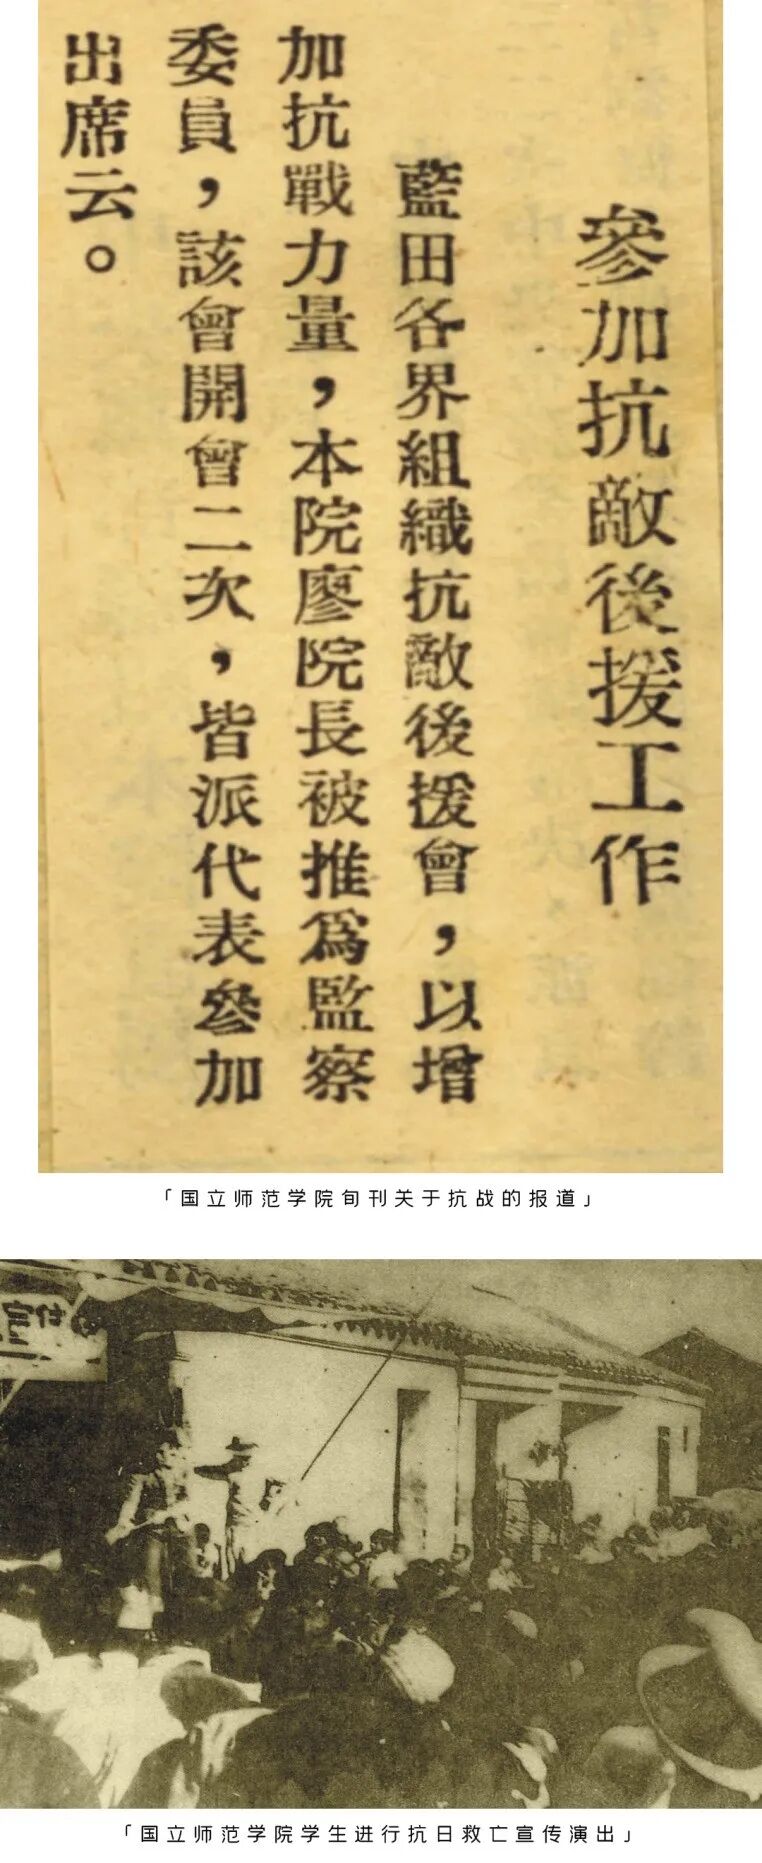 參加抗敵後援工作
藍田各界組織抗敵後援會，以增
加抗戰力量，本院廖院長被推為監察
委員，該會開會二次，皆派代表參加
出席云。
「国立师范学院旬刊关于抗战的报道」
「国立师范学院学生进行抗日救亡宣传演出」